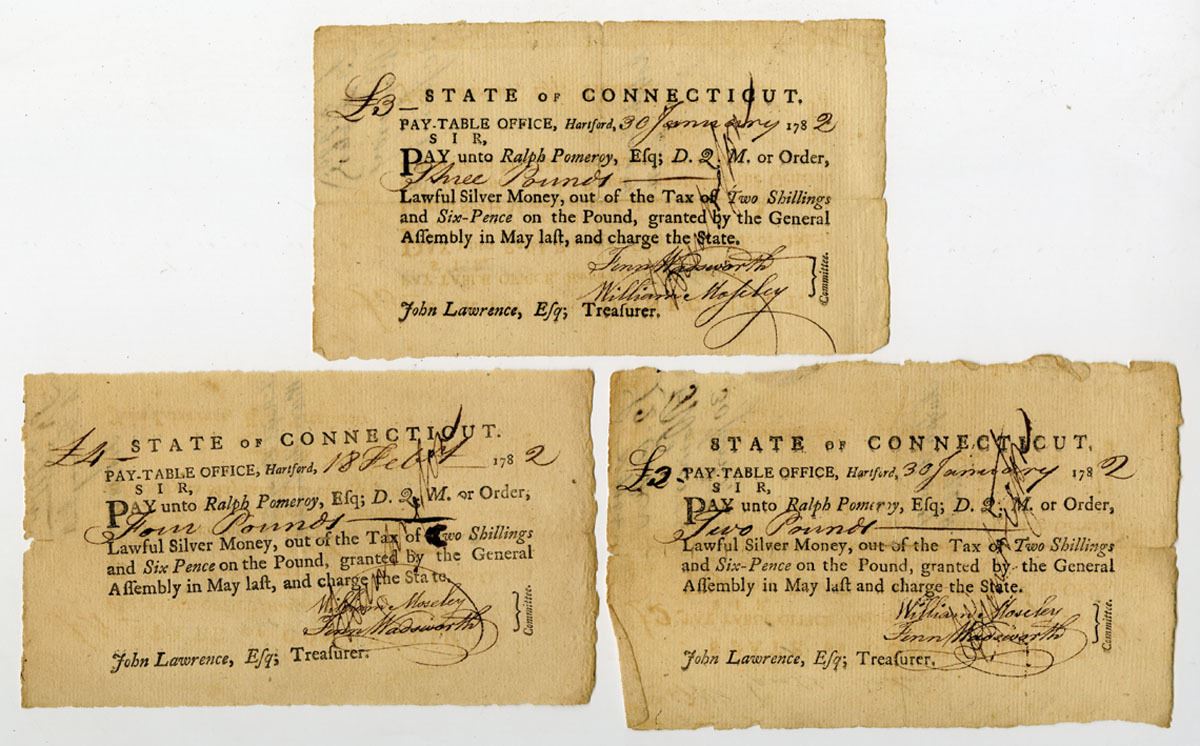 £3 STATE OF CONNECTICUT.
PAY-TABLE OFFICE, Hartford, 30 January 1782
SIR,
PAY unto Ralph Pomeroy, Esq; D. Q. M. or Order,
Three Pounds
Lawful Silver Money, out of the Tax of Two Shillings
and Six-Pence on the Pound, granted by the General
Aſſembly in May laſt, and charge the State.
Fenn Wadsworth
William Moseley
Committee.
John Lawrence, Eſq; Treaſurer.
£4 STATE OF CONNECTICUT.
PAY-TABLE OFFICE, Hartford, 18 Feby 1782
SIR,
PAY unto Ralph Pomeroy, Eſq; D. Q. M. or Order,
Four Pounds
Lawful Silver Money, out of the Tax of Two Shillings
and Six Pence on the Pound, granted by the General
Aſſembly in May laſt, and charge the State.
William Moseley
Fenn Wadsworth
Committee.
John Lawrence, Eſq; Treaſurer.
STATE OF CONNECTICUT,
£2 PAY-TABLE OFFICE, Hartford, 30 January 1782
SIR,
PAY unto Ralph Pomeroy, Eſq; D. Q. M. or Order,
Two Pounds
Lawful Silver Money, out of the Tax of Two Shillings
and Six-Pence on the Pound, granted by the General
Aſſembly in May laſt and charge the State.
William Moseley
Fenn Wadsworth
Committee.
John Lawrence, Eſq; Treaſurer.